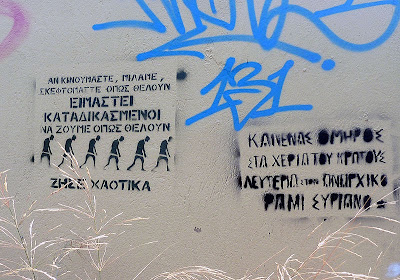 ΑΝ ΚΙΝΟΥΜΑΣΤΕ, ΜΙΛΑΜΕ,
ΣΚΕΦΤΟΜΑΣΤΕ ΟΠΩΣ ΘΕΛΟΥΝ
ΕΙΜΑΣΤΕ
ΚΑΤΑΔΙΚΑΣΜΕΝΟΙ
ΝΑ ΖΟΥΜΕ ΟΠΩΣ ΘΕΛΟΥΝ
ΖΗΣΕ ΧΑΟΤΙΚΑ
131
ΚΑΝΕΝΑΣ ΟΜΗΡΟΣ
ΣΤΑ ΧΕΡΙΑ ΤΟΥ ΚΡΑΤΟΥΣ
ΛΕΥΤΕΡΙΑ ΣΤΟΝ ΑΝΑΡΧΙΚΟ
ΡΑΜΙ ΣΥΡΙΑΝΟ